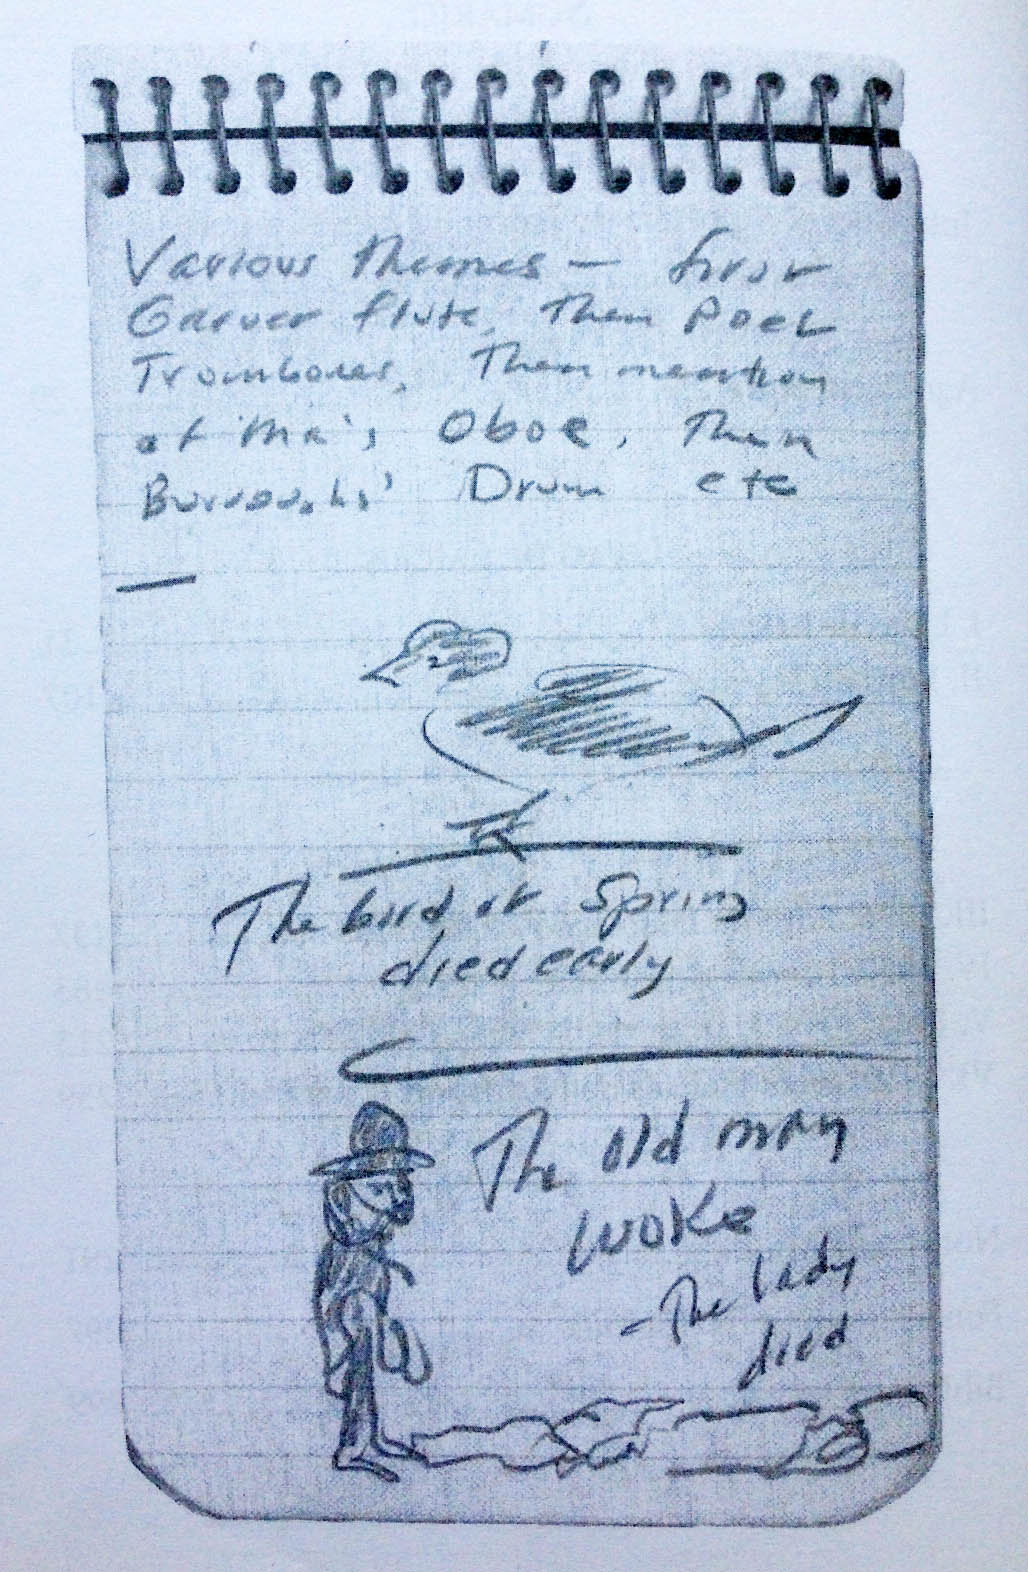 Various themes — first
Garver flute, Then Poet
Trombones, Then mention
of Ma's Oboe, Then
Burroughs' Drum etc
The bird of Spring
died early
The old man
woke
- The lady
died